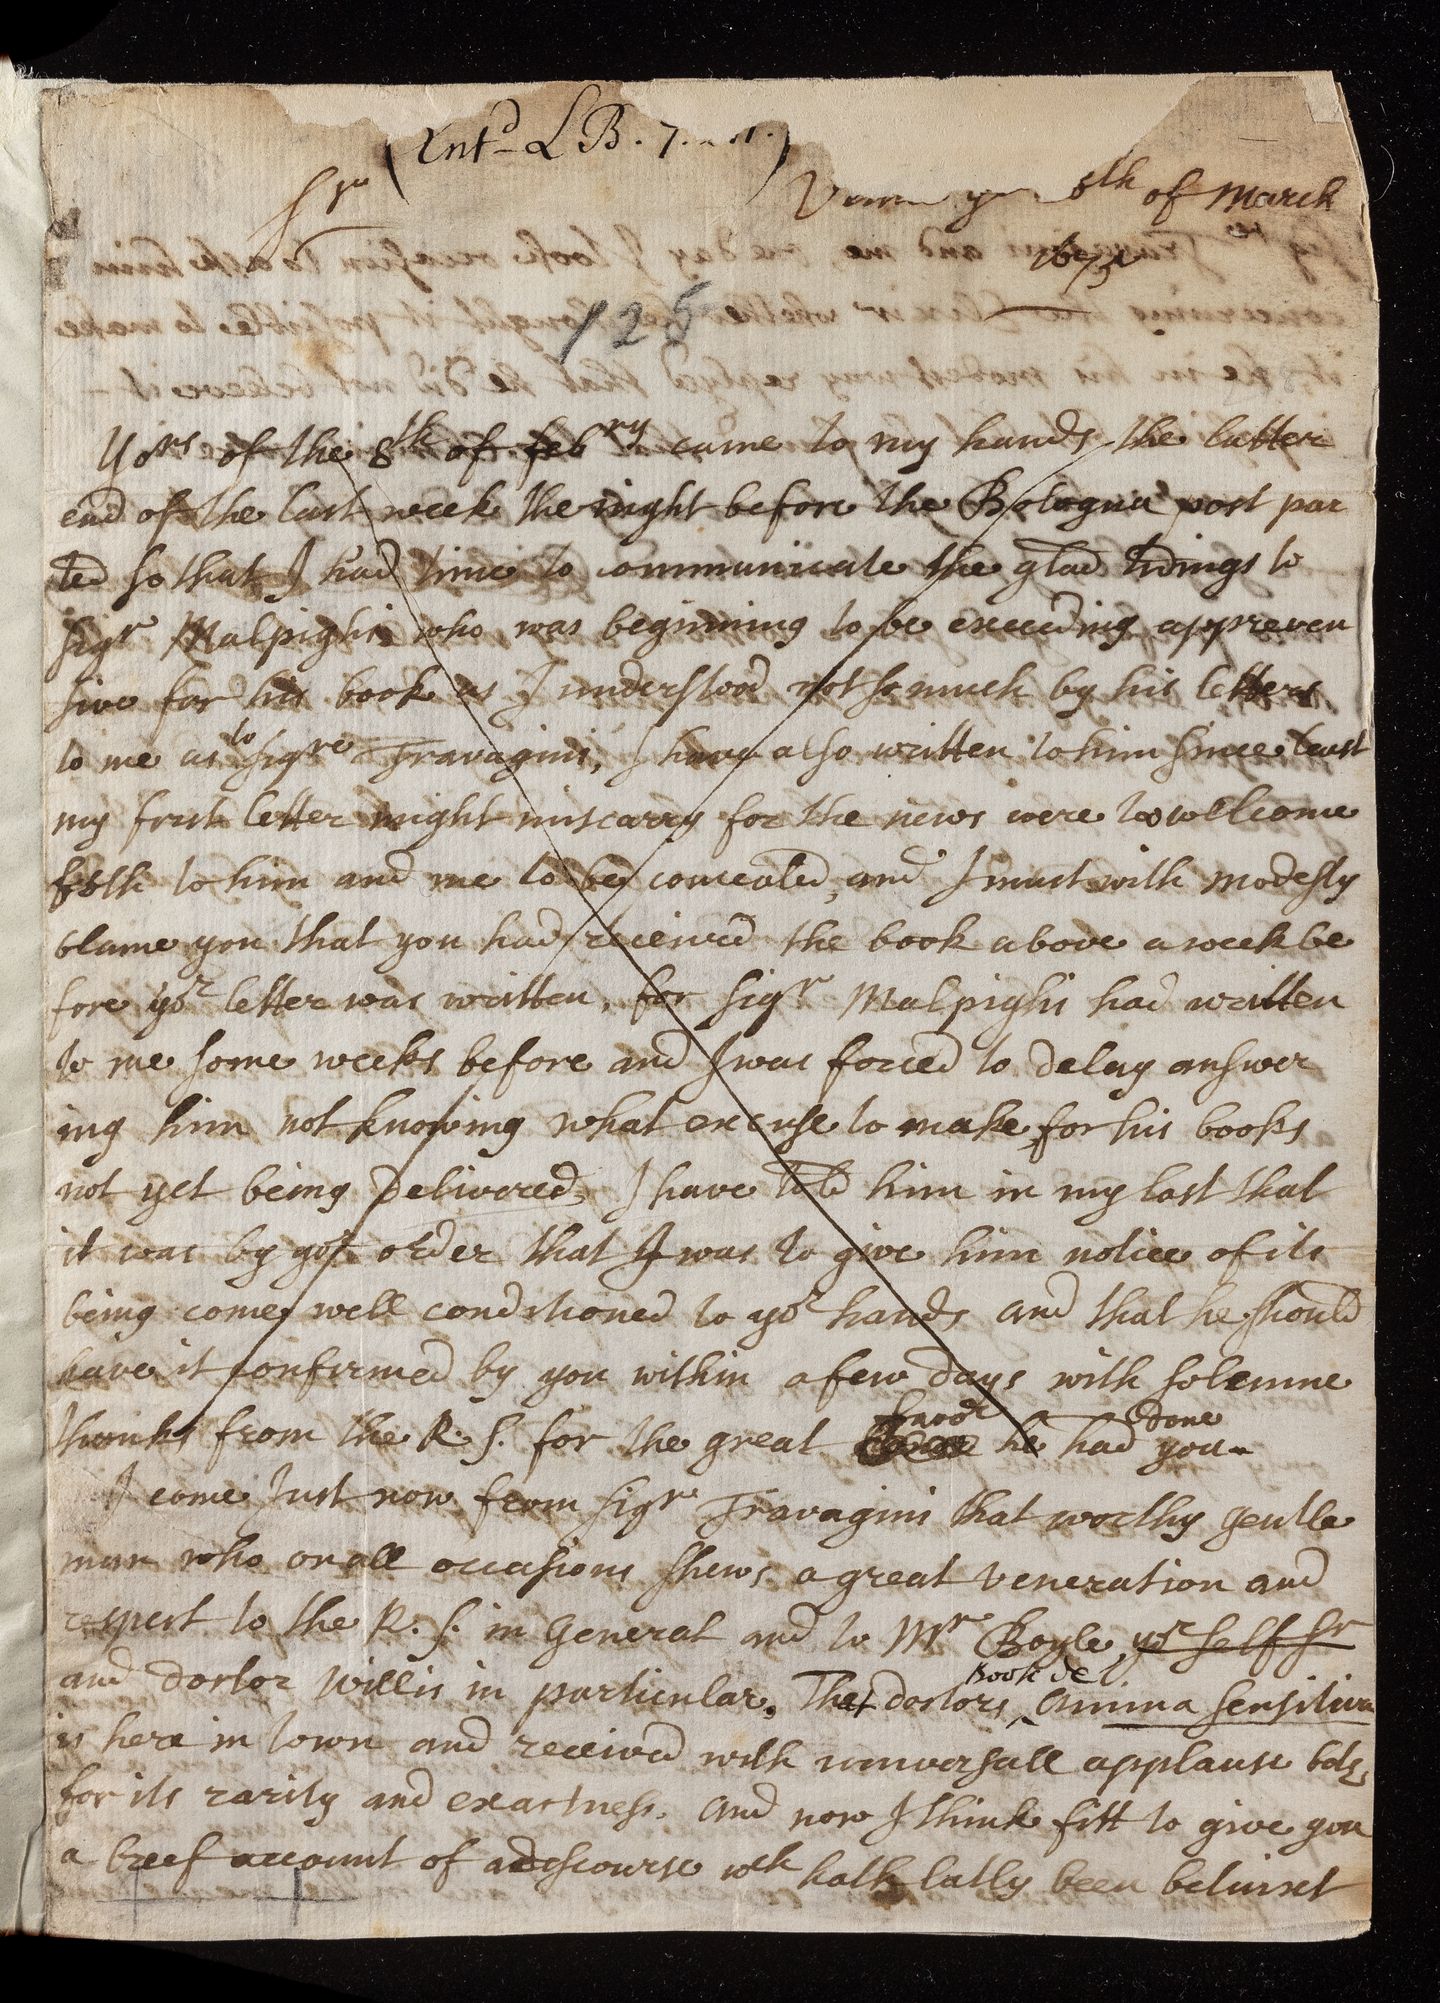 (Entd LB. 7.
Sr
ye 8th of March
1672
125
Yors of the 8th of febry came to my hands the latter
end of the last week the night before the Bologna post par
ted so that I had time to communicate the glad tidings to
Sigr Malpighi who was beginning to be exceeding apprehen
sive for his book as I understood not so much by his letters
to me as to Sigre Travagini, I have also written to him since least
my first letter might miscarry for the news were too wellcome
both to him and me to be concealed, and I must with modesty
blame you that you had received the book above a week be
fore yor letter was written, for Sigr Malpighi had written
to me some weeks before and I was forced to delay answer
ing him not knowing what excuse to make for his books
not yet being delivered, I have told him in my last that
it was by yor order that I was to give him notice of its
being come well conditioned to yor hands and that he should
have it confirmed by you within a few days with solemne
thanks from the R. S. for the great favor he had done you
I come Just now from Sigre Travagini that worthy gentle
man who on all occasions shews a great veneration and
respect to the R. S. in General and to Mr Boyle, yor self Sr
and doctor Willis in particular. That doctors Book de Anima sensitiva
is here in town and received with universall applause both
for its rarity and exactness. and now I think fitt to give you
a breef account of a discourse wch hath latly been betwixt